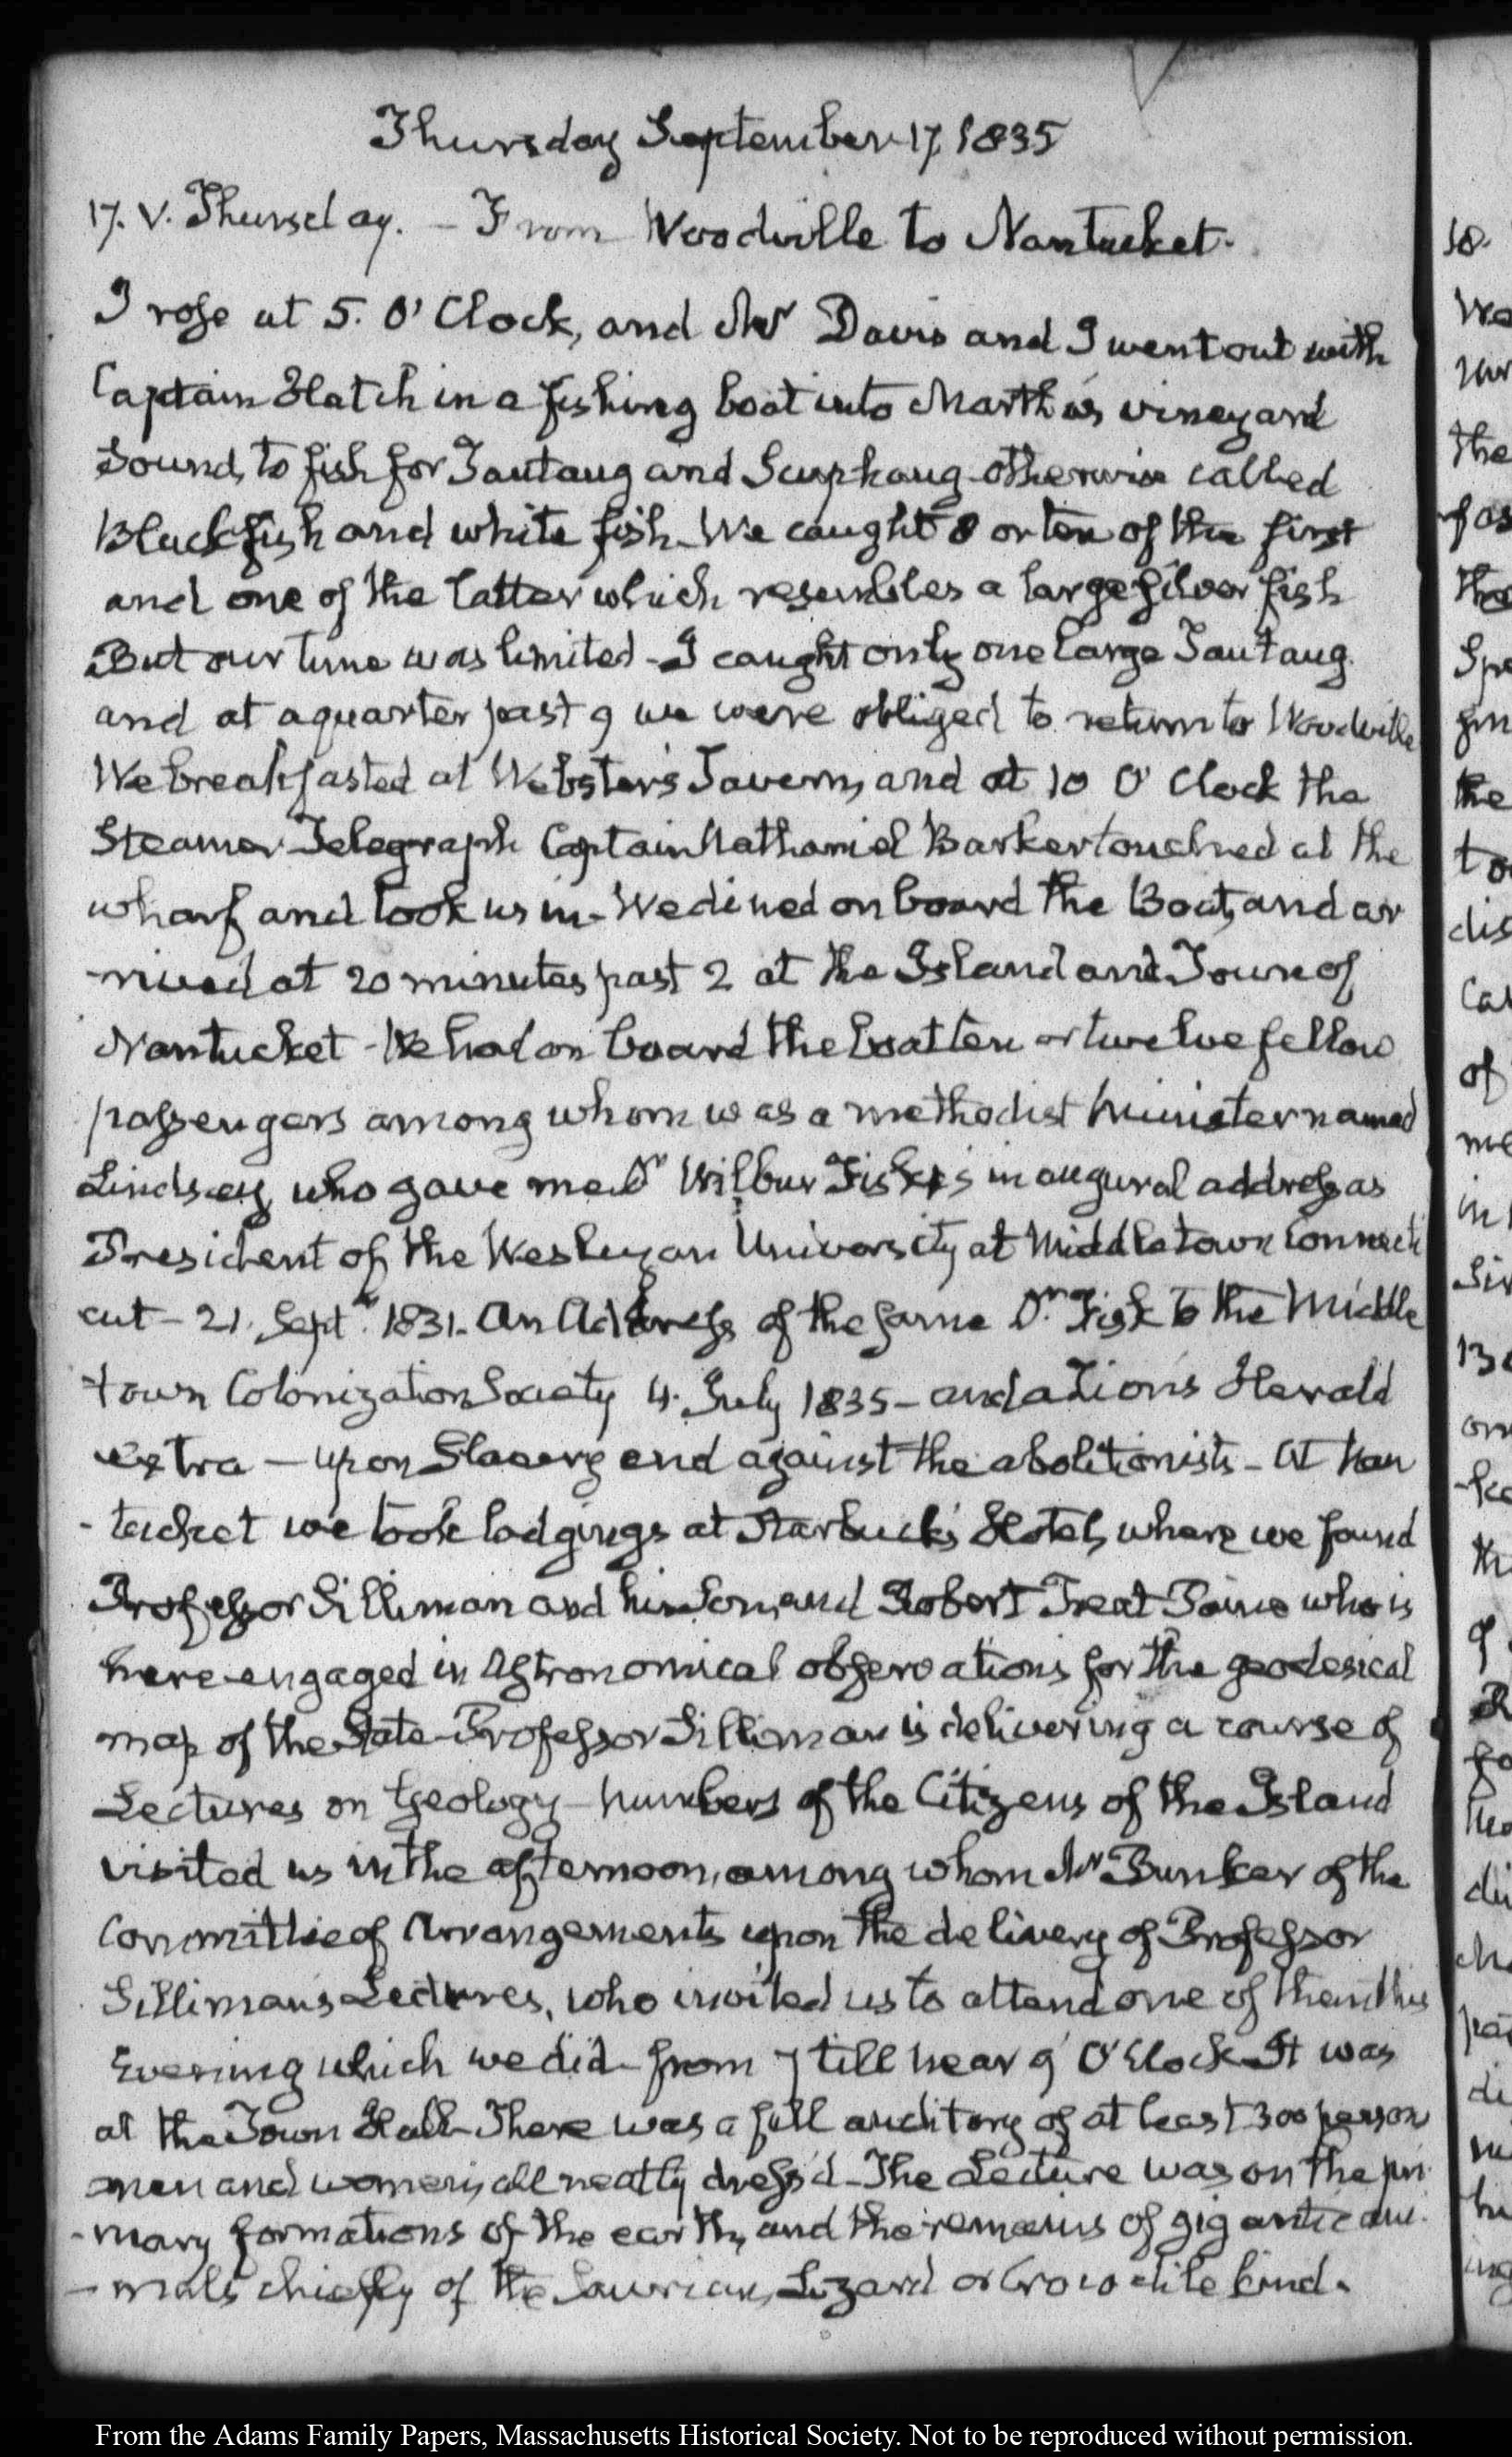 Thursday September 17, 1835
17. V. Thursday. – From Woodville to Nantucket.
I rose at 5. O' Clock, and Mr Davis and I went out with
Captain Hatch in a fishing boat into Martha's vineyard
Sound, to fish for Tautaug and Scuphaug otherwise called
Blackfish and white fish. We caught 8 or ten of the first
and one of the latter which resembles a large silver fish
But our time was limited – I caught only one large Tautaug.
and at a quarter past 9 we were obliged to return to Woodville
We breakfasted at Webster's Tavern, and at 10 O' Clock the
Steamer Telegraph Captain Nathaniel Barker touched at the
wharf and took us in – We dined on board the Boat, and ar
-rived at 20 minutes past 2 at the Island and Town of
Nantucket – We had on board the boat ten or twelve fellow
passengers among whom was a methodist Minister named
Lindsey, who gave me Dr Wilbur Fisk's inaugural address as
President of the Wesleyan University at Middletown Connecti
cut – 21. Septr. 1831. An Address of the same Dr. Fisk to the Middle
town Colonization Society 4. July 1835 – and a Zion's Herald
extra – upon Slavery and against the abolitionists – At Nan
-tucket we took lodgings at Starbuck's Hotel, where we found
Professor Silliman and his Son, and Robert Treat Paine who is
here engaged in Astronomical observations for the geodesical
map of the State – Professor Silliman is delivering a course of
Lectures on Geology – Numbers of the Citizens of the Island
visited us in the afternoon, among whom Mr Bunker of the
Committee of Arrangements upon the delivery of Professor
Silliman's Lectures, who invited us to attend one of them this
Evening which we did from 7 till near 9 O'Clock – It was
at the Town Hall – There was a full auditory of at least 300 persons
men and women, all neatly dress'd – The Lecture was on the pri
-mary formations of the earth, and the remains of gigantic ani
-mals chiefly of the Saurian, Lizard or Crocodile kind.
From the Adams Family Papers, Massachusetts Historical Society. Not to be reproduced without permission.